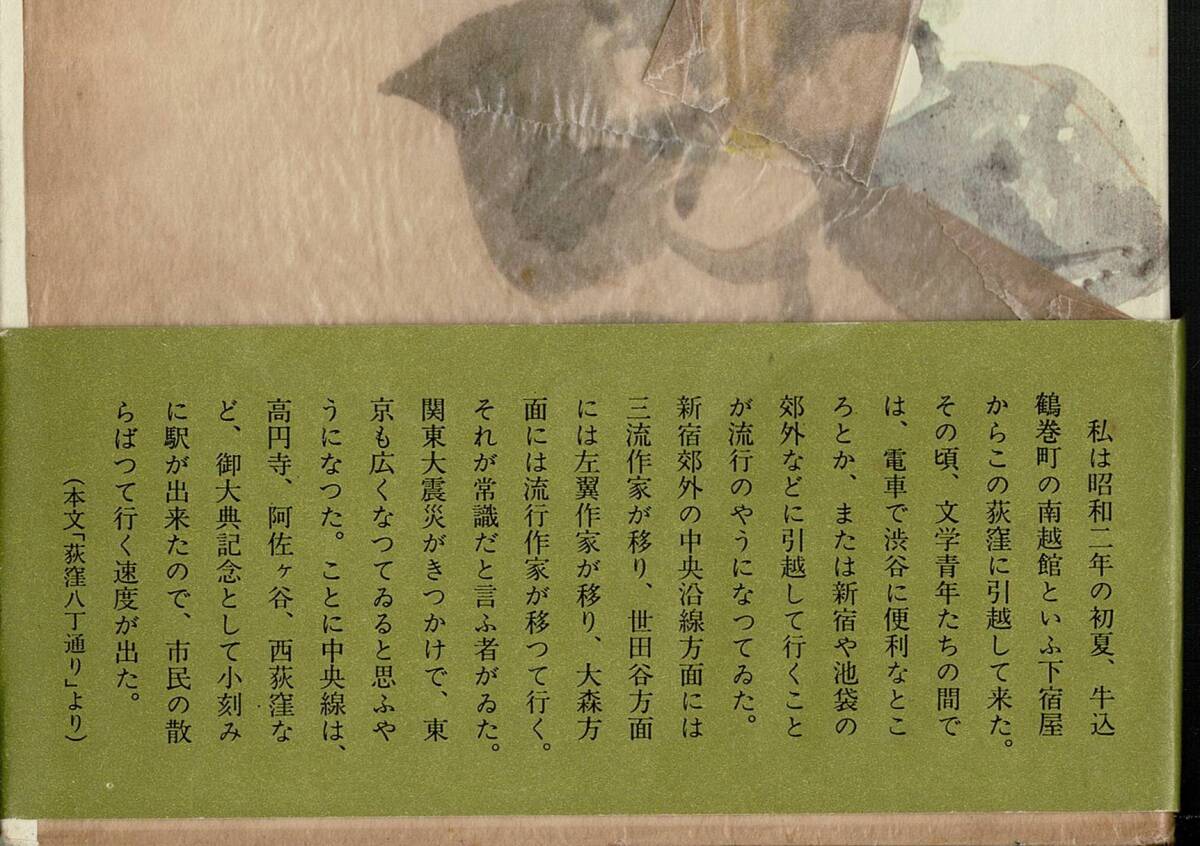 私は昭和二年の初夏、牛込
鶴巻町の南越館といふ下宿屋
からこの荻窪に引越して来た。
その頃、文学青年たちの間で
は、電車で渋谷に便利なとこ
ろとか、または新宿や池袋の
郊外などに引越して行くこと
が流行のやうになつてゐた。
新宿郊外の中央沿線方面には
三流作家が移り、世田谷方面
には左翼作家が移り、大森方
面には流行作家が移つて行く。
それが常識だと言ふ者がゐた。
関東大震災がきつかけで、東
京も広くなつてゐると思ふや
うになつた。ことに中央線は、
高円寺、阿佐ヶ谷、西荻窪な
ど、御大典記念として小刻み
に駅が出来たので、市民の散
らばつて行く速度が出た。
（本文「荻窪八丁通り」より）